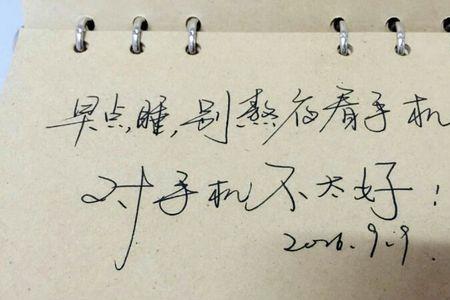 早点睡,别熬夜看手机
对手机不太好!
2016.9.9